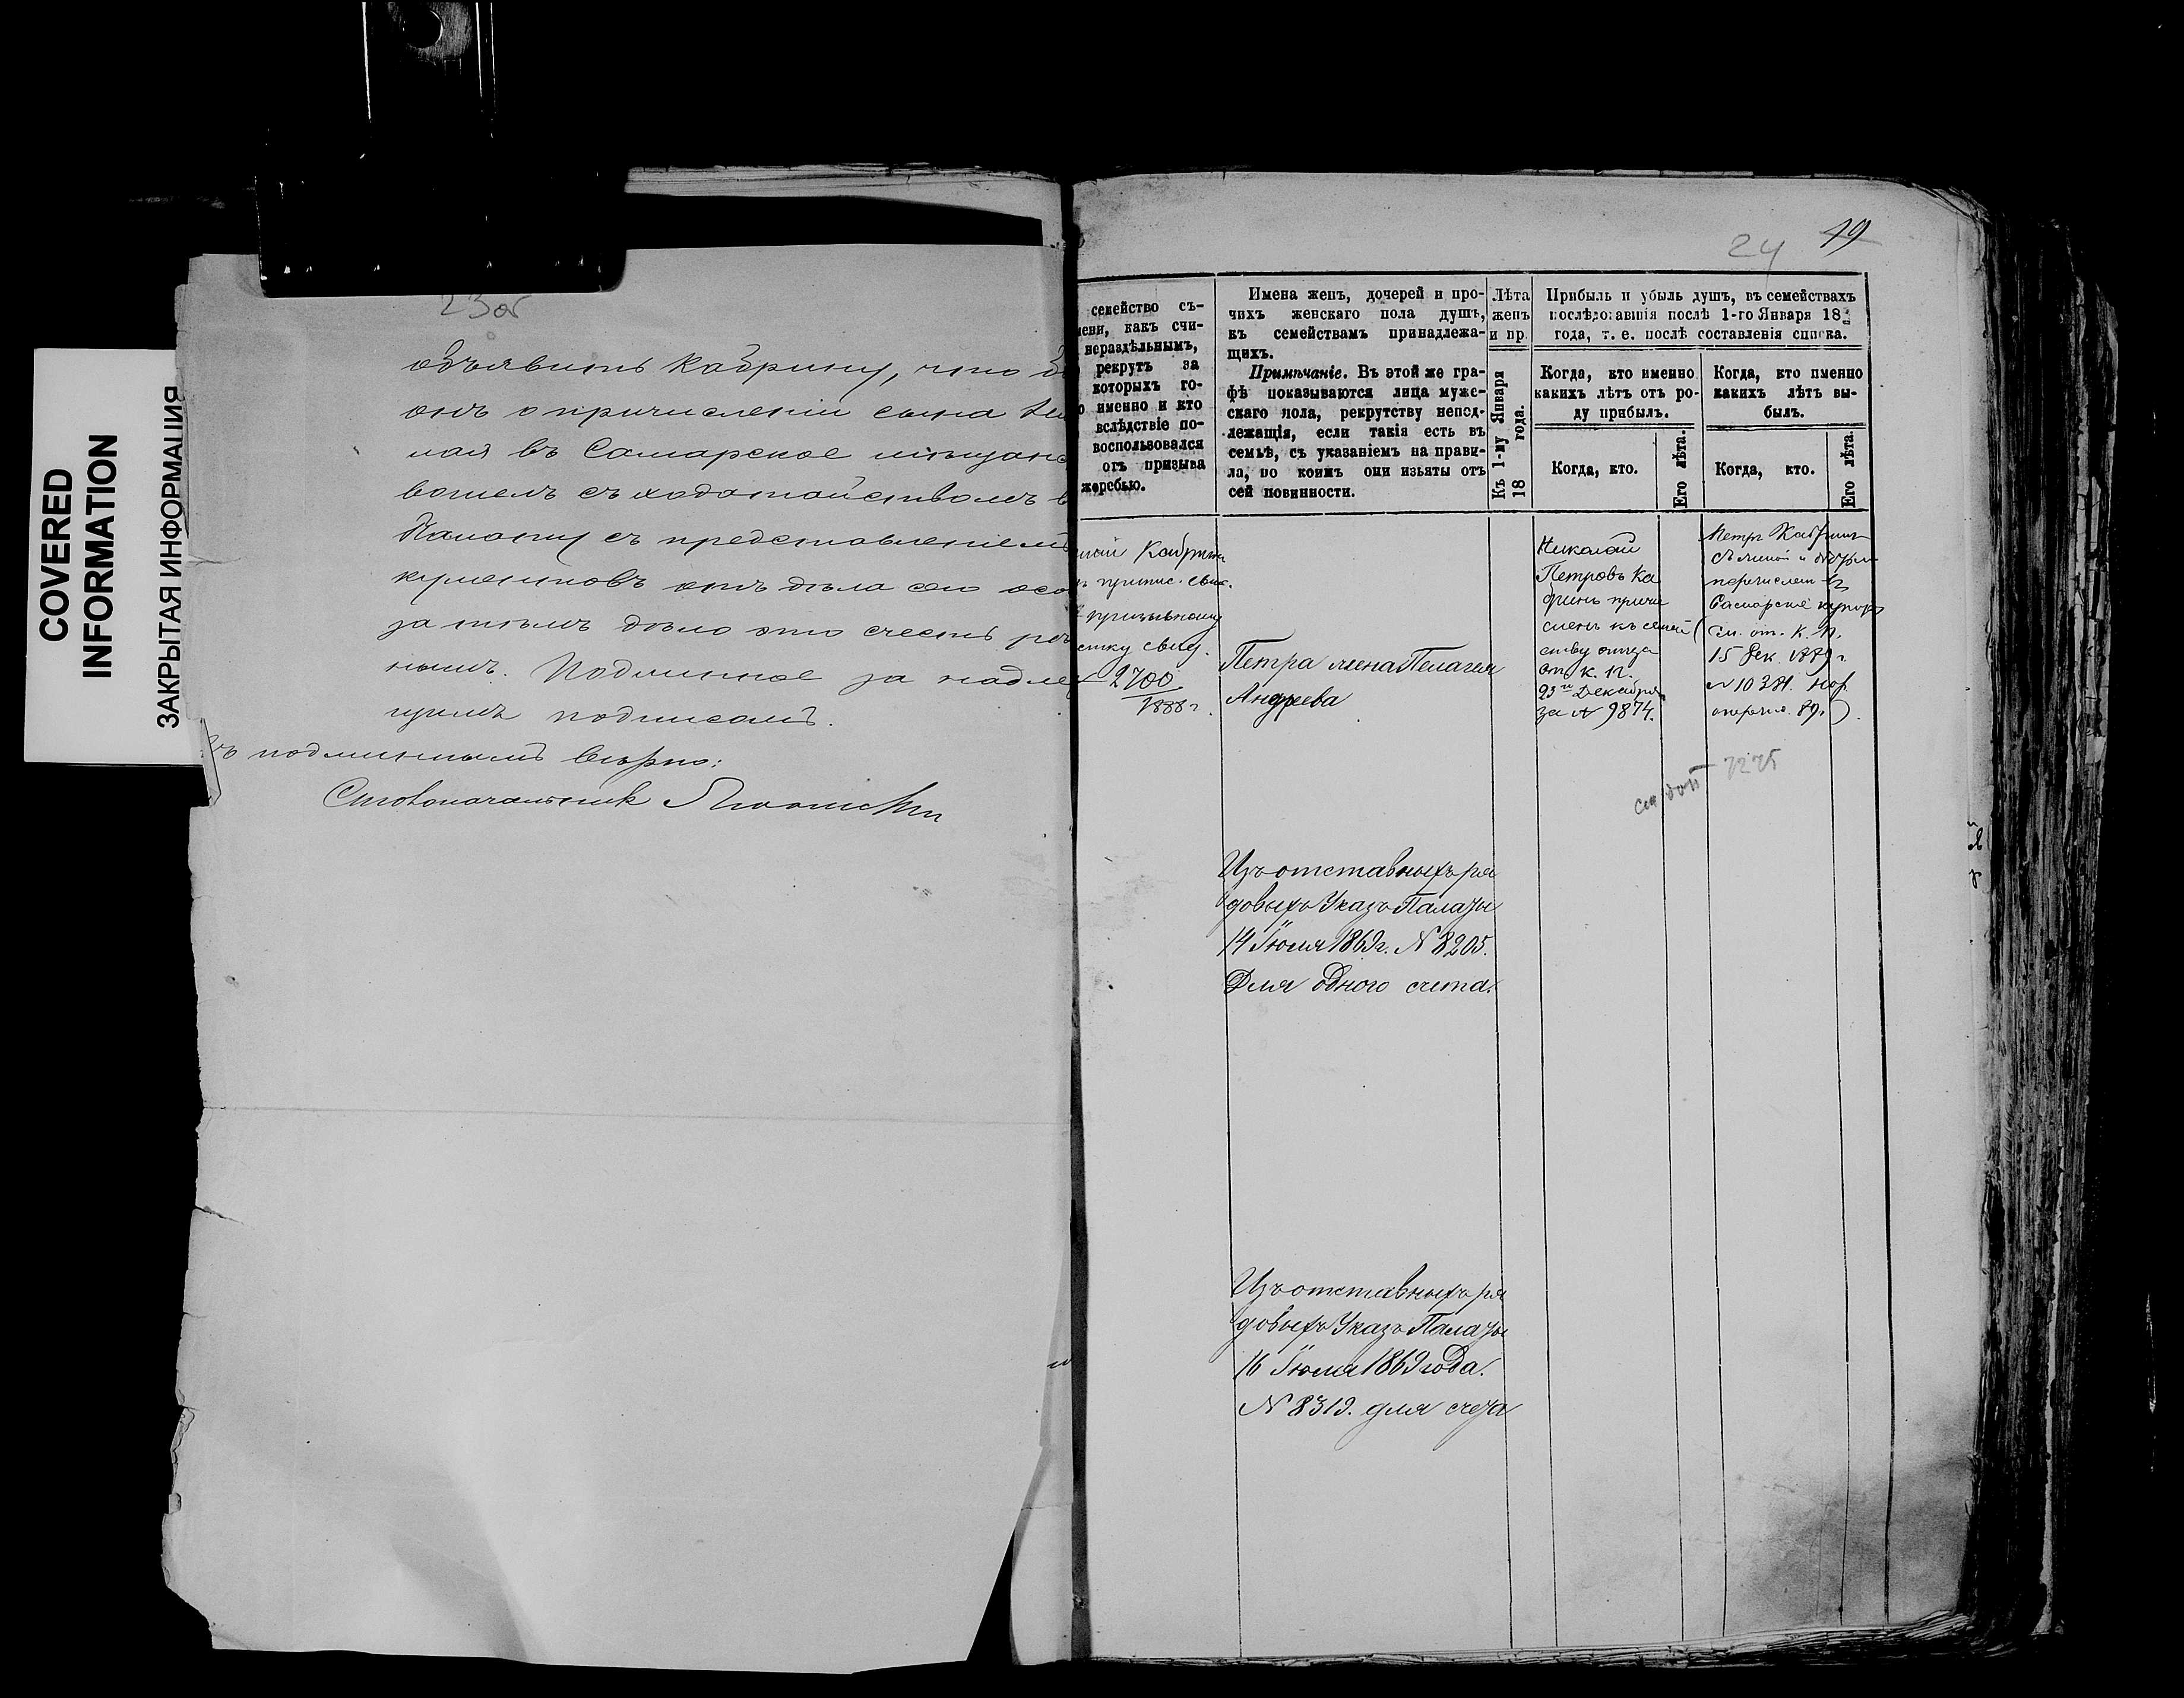 COVERED
INFORMATION
ЗАКРЫТАЯ ИНФОРМАЦИЯ
23об
объявить Кабрину, что
онъ о причисленіи сына
лая въ Самарское мѣщанс
вошелъ съ ходатайствомъ в
Палату съ представленіемъ
кументовъ отъ дѣла сего осо
за тѣмъ дѣло это счесть рѣ
нымъ. Подлинное за надле
щимъ подписомъ.
подлиннымъ вѣрно:
Столоначальникъ
24 19
семейство съ-
мени, какъ счи-
нераздѣльнымъ,
рекрутъ за
которыхъ го-
о именно и кто
вслѣдствіе по-
воспользовался
отъ призыва
жеребью.
Имена женъ, дочерей и про-
чихъ женскаго пола душъ,
къ семействамъ принадлежа-
щихъ.
Примѣчаніе. Въ этой же гра-
фѣ показываются лица муже-
скаго пола, рекрутству непод-
лежащія, если такія есть въ
семьѣ, съ указаніемъ на прави-
ла, по коимъ они изъяты отъ
сей повинности.
Лѣта
женъ
и пр
Къ 1-му Января
18 года.
Прибыль и убыль душъ, въ семействахъ
послѣдовавшія послѣ 1-го Января 18
года, т. е. послѣ составленія списка.
Когда, кто именно
какихъ лѣтъ отъ ро-
ду прибылъ.
Когда, кто.
Его лѣта.
Когда, кто именно
какихъ лѣтъ вы-
былъ.
Когда, кто.
Его лѣта.
лай Кабринъ
припис. свид.
призывному
стку свид.
2700
1888 г.
Петра жена Пелагея
Андреева
Николай
Петровъ Ка
бринъ причи
сленъ къ семей
ству отца
от. К. П.
23го Декабря
за № 9874.
Петръ Кабринъ
перечислен въ
Самарскіе купцы
(См. от. К. П.
15 Дек. 1889 г
№ 10381.
Изъ отставныхъ ря
довыхъ Указъ Палаты
14 Іюля 1869 г. № 8205.
Для одного счета.
Изъ отставныхъ ря
довыхъ Указъ Палаты
16 Іюля 1869 года.
№ 8319. для счета